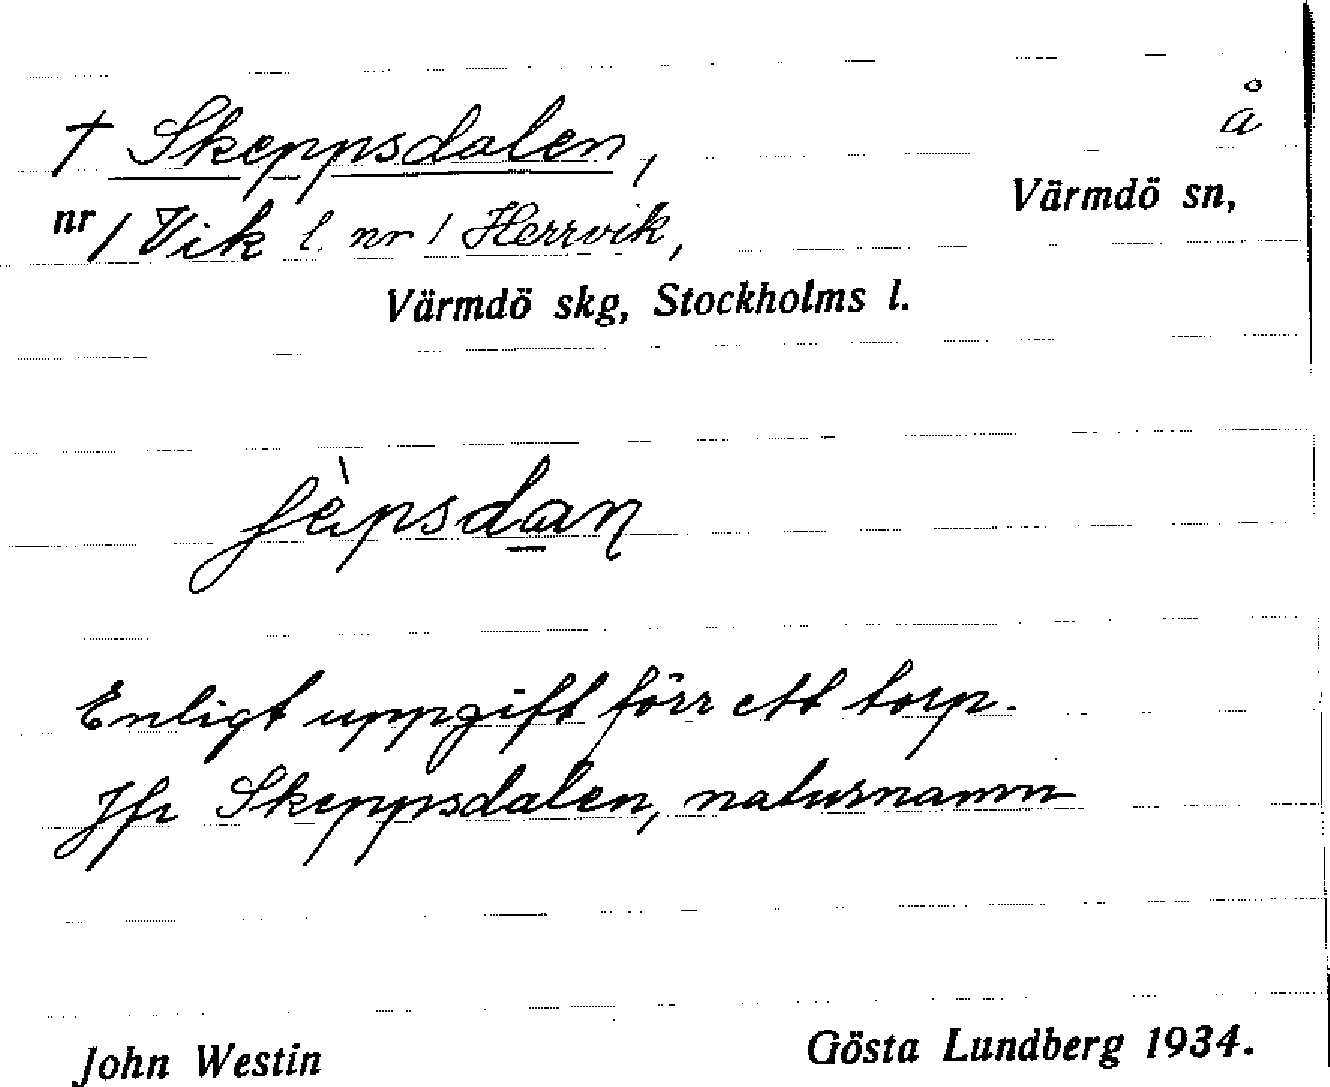 å
† Skeppsdalen,
Värmdö sn,
nr 1 Vik l. nr 1 Herrvik,
Värmdö skg, Stockholms l.
ʃèpsdan
Enligt uppgift förr ett torp.
Jfr Skeppsdalen, naturnamn
John Westin
Gösta Lundberg 1934.